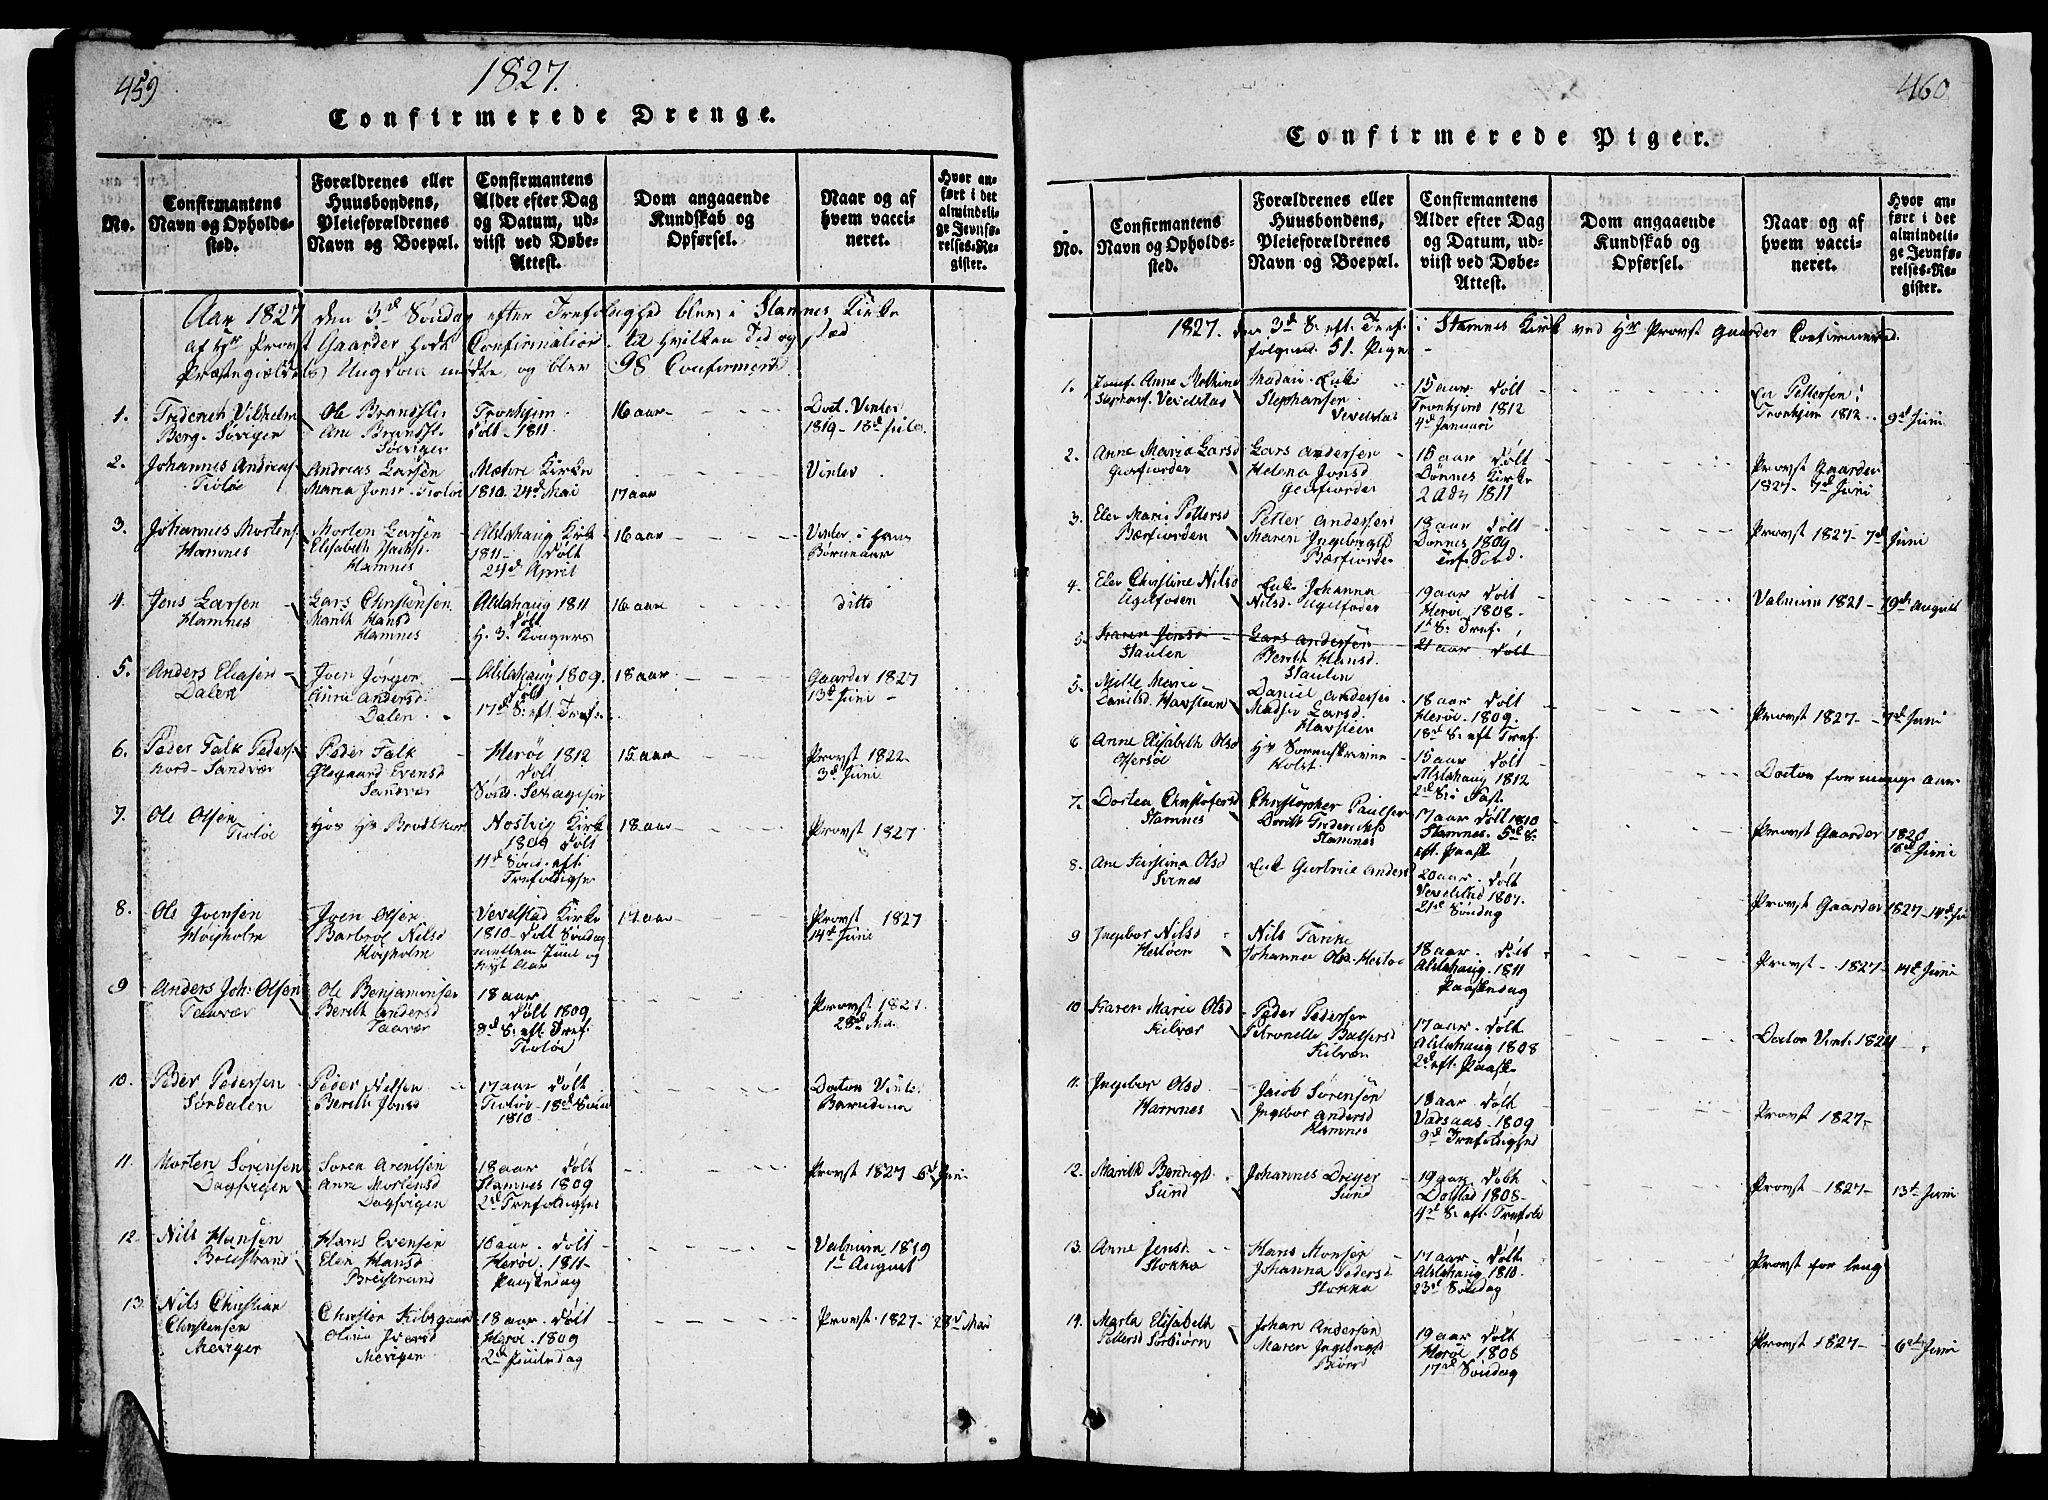 459
1827.
Confirmerede Drenge.
No.
Confirmantens
Navn og Opholds-
sted.
Forældrenes eller
Huusbondens,
Pleieforældrenes
Navn og Boepæl.
Confirmantens
Alder efter Dag
og Datum, ud-
viist ved Døbe-
Attest.
Dom angaaende
Kundskab og
Opførsel.
Naar og af
hvem vacci-
neret.
Hvor an-
ført i det
almindeli-
ge Jevnfø-
relses-Re-
gister.
Aar 1827 den 3d Søndag efter Trefoldighed blev i Stamnes Kirke
af Hr Provst Gaarder holdt Confirmation til hvilken Tid og Sted
Præstegieldets Ungdom mødte, og blev 98 Confirmert
1. Vilhelm
Berg. Søvigen
Ole
Ane
Søeviger
Tronhjem
døbt 1811
16 aar
Doct. Vinter
1819 - 18d Juli
2. Johannes Andreas
Tiøtøe
Andreas Larsen
Maria Jonsd. Tiøtøe
Kirke
1810. 24d Mai
17 aar
Vinter
3. Johannes Mortens
Hamnes
Morten Larsen
Elisabeth
Hamnes
Alstahaug Kirk
1811 - døbt
24d April
16 aar
Vinter i hans
Børneaar
4. Jens Larsen
Hamnes
Lars Christensen
Marith Hansd
Hamnes
Alstahaug 1811
døbt
H. 3. Kongers
16 aar
ditto
5. Anders Eliasen
Dalen
Joen Jørgen
Anne Andersd
Dalen
Alstahaug 1809.
døbt
17d S. eft. Tref.
18 aar
Gaarder 1827
13d Juni
6. Peder Falk Peders
Nord-Sandvær
Peder Falk
Evensd
Sandvær
Herøe 1812
døbt
15 aar
Provst 1822
3d Juni
7. Ole Olsen
Tiøtøe
Hos Hr Brodtkorb
Kirk
1809 døbt
11d Sønd. eft.
Trefoldighe
18 aar
Provst 1827
8. Ole Joensen
Høyholm
Joen Olsen
Barbroe Nilsd
Høyholm
Vevelstad Kirke
1810 - døbt Søndag
mellem Juul og
nyt Aar
17 aar
Provst 1827
14d Juni
9 Anders Joh. Olsen
Taavær
Ole Benjaminsen
Berith Andersd
Taavær
18 aar
døbt 1809
8d S. eft. Tref.
Tiøtøe
Provst 1827.
28d Mai
10. Peder Pedersen
Sørdalen
Peder Nilsen
Berith Jonsd
17 aar døbt
Tiøtøe - 18d Sønd
1810
Docton Vint.
11. Morten Sørensen
Dagsvigen
Søren Arentsen
Anne Mortensd
Dagsvigen
18 aar døbt
Stamnes 1809
2d Trefoldighe
Provst 1827 6d Juni
12. Nils Hansen
Breistrand
Hans Evensen
Elen Hansd
Breistrand
16 aar. døbt
Herøe. 1811
Paaskedag
Valnum 1819
1d August
13. Nils Christian
Christensen
Meviger
Christen
Olina Iversd
Mevigen
18 aar. døbt
Herøe. 1809
2d Juuledag
Provst. 1827 - 28d Mai
460
Confirmerede Piger.
No.
Confirmantens
Navn og Opholds-
sted.
Forældrenes eller
Huusbondens,
Pleieforældrenes
Navn og Boepæl.
Confirmantens
Alder efter Dag
og Datum, ud-
viist ved Døbe-
Attest.
Dom angaaende
Kundskab og
Opførsel.
Naar og af
hvem vacci-
neret.
Hvor an-
ført i det
almindeli-
ge Jevnfø-
relses-Re-
gister.
1827. den 3d S. eft. Tref. i Stamnes Kirk ved Hr Provst Gaarder Confirmered.
følgend. 51. Pige
1. Jomf. Anne
Stephans. Vevelstad
Madam Enke
Stephansen
Vevelstad
15 aar døbt
Tronhjem 1812
4d Januari
Pettersen i
Tronhjem 1812 9d Juni
2. Anne Maria Larsd
Lars Andersen
Helena Jonsd
16 aar døbt
Dønnes Kirke
2 Adv 1811
Provst Gaarder
1827 - 7d Juni
3. Elen Marie Pettersd
Bærfiorden
Petter Andersen
Maren Ingebrigtsd
Bærfiorden
18 aar døbt
Dønnes 1809
Provst 1827 - 7d Juni
4. Elen Christine Nilsd
Ugelfoden
Enke Johanna
Nilsd. Ugelfoden
19 aar døbt
Herøe 1808.
1d S. Tref.
Valnum 1821 - 19de August
5. Karen Jonsd
Staulen
Lars Andersen
Berith Hansd.
Staulen
21 aar døbt
5. Mille Marie
Danielsd. Havsteen
Daniel Andersen
Larsd.
Havsteen
18 aar døbt
Herøe. 1809.
18d S. eft Tref.
Provst 1827 - 7d Juni
6 Anne Elisabeth Olsd
Hr Sorenskriver
Holst.
15 aar døbt
Alstahaug 1812
2d S. i Fast.
Docton for mange aar
7. Dortea Christofersd
Stamnes
Christopher Paulsen
Dorith Frederiksd
Stamnes
17 aar døbt 1810
Stamnes. 5d S.
eft. Paaske
Provst Gaarder 1820
16d Juni
8. Ane Olsd
Svines
Enk. Anders
20 aar. døbt
Vevelstad 1807.
21d Søndag
Provst Gaarder 1827 - 14d Ju
9 Ingebor Nilsd
Hestøen
Nils
Johanna Olsd. Hestøe
18 aar. døbt
Alstahaug. 1811
Paaskedag
Provst 1827 - 14d Juni
10 Karen Marie Olsd
Kilvær
Peder Pedersen
Petronelle Baltsersd
Kilvær
17 aar døbt
Alstahaug 1808
2d eft. Paaske
Docton Vint. 1824
11. Ingebor Olsd
Hamnes
Jacob Sørensen
Ingebor Andersd
Hamnes
18 aar døbt
Vadsaas 1809
9d Trefoldighed
Provst 1827
12. Marith
Sund
Johannes Dreyer
Sund
19 aar døbt
Dolstad 1808
4d S. eft. Trefold
Provst 1827 13d Juni
13. Anne Jensd.
Stokka
Hans Monsen
Johanna Pedersd
Stokka
17 aar døbt
Alstahaug 1810.
23d Søndag
Provst for leng
14. Marta Elisabeth
Pettersd
Johan Andersen
Maren Ingebrigtsd
19 aar døbt
Herøe 1808
17d Søndag
Provst 1827 - 6te Juni